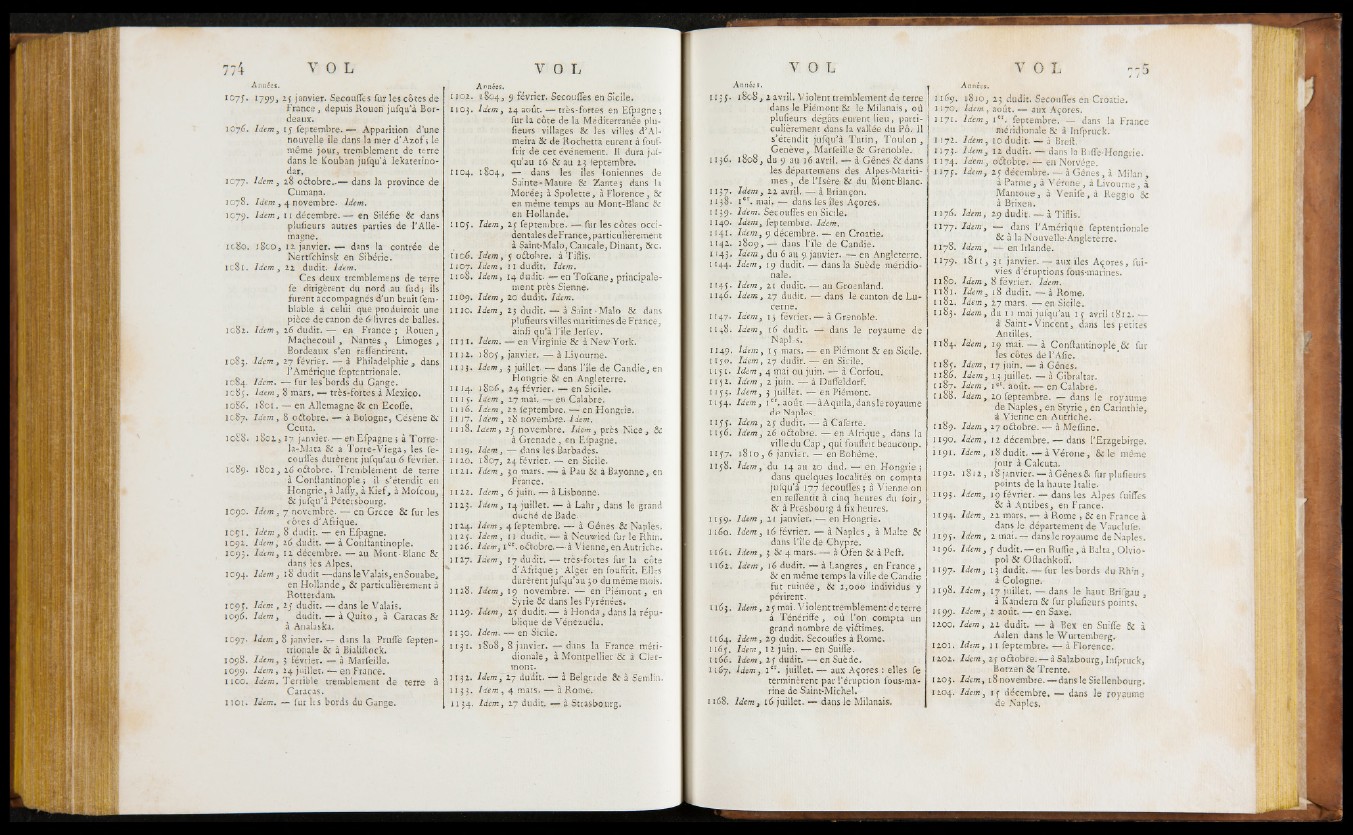 774 VOL
Années.
1075. 1799, 25 janvier. Secouſſes ſur les côtes de
France, depuis Rouen juſqu'à Bor-
deaux.
1076. Idem, 15 ſeptembre. — Apparition d'une
nouvelle île dans la mer d'Azof ; le
même jour, tremblement de terre
dans le Kouban juſqu'à Iekaterino-
dar.
1077. Idem, 28 octobre. — dans la province de
Cumana.
1078. Idem, 4 novembre. Idem.
1079. Idem, 11 décembre. — en Siléſie & dans
pluſieurs autres parties de l'Alle-
magne.
1080. 1800, 12 janvier. — dans la contrée de
Nertſchinsk en Sibérie.
1081. Idem, 22 dudit. Idem.
Ces deux tremblemens de terre
ſe dirigèrent du nord au ſud ; ils
furent accompagnés d'un bruit ſem-
blable à celui que produiroit une
pièce de canon de 6 livres de balles.
1082. Idem, 26 dudit. — en France ; Rouen,
Machecoul, Nantes, Limoges,
Bordeaux s'en reſſentirent.
1083. Idem, 27 février. — à Philadelphie, dans
l'Amérique ſeptentrionale.
1084. Idem. — ſur les bords du Gange.
1085. Idem, 8 mars. — très-fortes à Mexico.
1086. 1801. — en Allemagne & en Ecoſſe.
1087. Idem, 8 octobre. — à Bologne, Césène &
Ceuta.
1088. 1802, 17 janvier. — en Eſpagne ; à Torre-
la-Mata & à Torre-Viega, les ſe-
couſſes durèrent juſqu'au 6 février.
1089. 1802, 26 octobre. Tremblement de terre
à Conſtantinople ; il s'étendit en
Hongrie, à Jaſſy, à Kief, à Moſcou,
& juſqu'à Pétersbourg.
1090. Idem, 7 novembre. — en Grèce & ſur les
côtes d'Afrique.
1091. Idem, 8 dudit. — en Eſpagne.
1092. Idem, 26 dudit. — à Conſtantinople.
1093. Idem, 12 décembre. — au Mont-Blanc &
dans les Alpes.
1094. Idem, 18 dudit — dans le Valais, en Souabe,
en Hollande, & particulièrement à
Rotterdam.
1095. Idem, 25 dudit. — dans le Valais.
1096. Idem, dudit. — à Quito, à Caracas &
à Analaska.
1097. Idem, 8 janvier. — dans la Pruſſe ſepten-
trionale & à Bialiſtock.
1098. Idem, 3 février. — à Marſeille.
1099. Idem, 24 juillet. — en France.
1100. Idem. Terrible tremblement de terre à
Caracas.
1101. Idem. — ſur les bords du Gange.
VOL
Années.
1102. 1804, 9 février. Secouſſes en Sicile.
1103. Idem, 24 août. — très-fortes en Eſpagne ;
ſur la côte de la Méditerranée plu-
ſieurs villages & les villes d'Al-
meira & de Rochetta eurent à ſouf-
frir de cet événement. Il dura juſ-
qu'au 16 & au 23 ſeptembre.
1104. 1804, — dans les îles Ioniennes de
Sainte-Maure & Zante ; dans la
Morée ; à Spolette, à Florence, &
en même temps au Mont-Blanc &
en Hollande.
1105. Idem, 25 ſeptembre. — ſur les côtes occi-
dentales de France, particulièrement
à Saint-Malo, Cancale, Dinant, &c.
1106. Idem, 5 octobre. à Tiflis.
1107. Idem, 11 dudit. Idem.
1108. Idem, 14 dudit. — en Toſcane, principale-
ment près Sienne.
1109. Idem, 20 dudit. Idem.
1110. Idem, 23 dudit. — à Saint-Malo & dans
pluſieurs villes maritimes de France,
ainſi qu'à l'île Jerſey.
1111. Idem. — en Virginie & à New-York.
1112. 1805, janvier. — à Livourne.
1113. Idem, 3 juillet. — dans l'île de Candie, en
Hongrie & en Angleterre.
1114. 1806, 24 février. — en Sicile.
1115. Idem, 27 mai. — en Calabre.
1116. Idem, 22 ſeptembre. — en Hongrie.
1117. Idem, 18 novembre. Idem.
1118. Idem, 25 novembre. Idem, près Nice, &
à Grenade, en Eſpagne.
1119. Idem, — dans les Barbades.
1120. 1807, 24 février. — en Sicile.
1121. Idem, 30 mars. — à Pau & à Bayonne, en
France.
1122. Idem, 6 juin. — à Lisbonne.
1123. Idem, 14 juillet. — à Lahr, dans le grand
duché de Bade
1124. Idem, 4 ſeptembre. — à Gênes & Naples.
1125. Idem, 11 dudit. — à Neuwied ſur le Rhin.
1126. Idem, 1er. octobre. — à Vienne, en Autriche.
1127. Idem, 17 dudit. — très-fortes ſur la côte
d'Afrique ; Alger en ſouffrit. Elles
durèrent juſqu'au 30 du même mois.
1128. Idem, 19 novembre. — en Piémont, en
Syrie & dans les Pyrénées.
1129. Idem, 25 dudit. — à Honda, dans la répu-
blique de Vénézuéla.
1130. Idem. — en Sicile.
1131. 1808, 8 janvier. — dans la France méri-
dionale, à Montpellier & à Cler-
mont.
1132. Idem, 27 dudit. — à Belgrade & à Semlin.
1133. Idem, 4 mars. — à Rome.
1134. Idem, 27 dudit. — à Strasbourg.
VOL
Années.
1135. 1808, 2 avril. Violent tremblement de terre
dans le Piémont & le Milanais, où
pluſieurs dégâts eurent lieu, parti-
culièrement dans la vallée du Pô. Il
s'étendit juſqu'à Turin, Toulon,
Genève, Marſeille & Grenoble.
1136. 1808, du 9 au 16 avril. — à Gênes & dans
les départemens des Alpes-Mariti-
mes, de l'Isère & du Mont-Blanc.
1137. Idem, 22 avril. — à Briançon.
1138. 1er. mai, — dans les îles Açores.
1139. Idem. Secouſſes en Sicile.
1140. Idem, ſeptembre. Idem.
1141. Idem, 9 décembre. — en Croatie.
1142. 1809, — dans l'île de Candie.
1143. Idem, du 6 au 9 janvier. — en Angleterre.
1144. Idem, 19 dudit. — dans la Suède méridio-
nale.
1145. Idem, 21 dudit. — au Groenland.
1146. Idem, 27 dudit. — dans le canton de Lu-
cerne.
1147. Idem, 15 février. — à Grenoble.
1148. Idem, 16 dudit. — dans le royaume de
Naples.
1149. Idem, 15 mars. — en Piémont & en Sicile.
1150. Idem, 27 dudit. — en Sicile.
1151. Idem, 4 mai ou juin. — à Corfou.
1152. Idem, 2 juin. — à Duſſeldorf.
1153. Idem, 3 juillet. — en Piémont.
1154. Idem, 1er. août. — à Aquila, dans le royaume
de Naples.
1155. Idem, 25 dudit. — à Caſerte.
1156. Idem, 26 octobre. — en Afrique, dans la
ville du Cap, qui ſouffrit beaucoup.
1157. 1810, 6 janvier. — en Bohême.
1158. Idem, du 14 au 20 dud. — en Hongrie ;
dans quelques localités on compta
juſqu'à 177 ſecouſſes ; à Vienne on
en reſſentit à cinq heures du ſoir,
& à Presbourg à ſix heures.
1159. Idem, 21 janvier. — en Hongrie.
1160. Idem, 16 février. — à Naples, à Malte &
dans l'île de Chypre.
1161. Idem, 3 & 4 mars. — à Ofen & à Peſt.
1162. Idem, 16 dudit. — à Langres, en France,
& en même temps la ville de Candie
fut ruinée, & 2,000 individus y
périrent.
1163. Idem, 25 mai. Violent tremblement de terre
à Ténériffe, où l'on compta un
grand nombre de victimes.
1164. Idem, 29 dudit. Secouſſes à Rome.
1165. Idem, 12 juin. — en Suiſſe.
1166. Idem, 25 dudit. — en Suède.
1167. Idem, 1er. juillet. — aux Açores : elles ſe
terminèrent par l'éruption ſous-ma-
rine de Saint-Michel.
1168. Idem, 16 juillet. — dans le Milanais.
VOL 775
Années.
1169. 1810, 23 dudit. Secouſſes en Croatie.
1170. Idem, août. — aux Açores.
1171. Idem, 1er. ſeptembre. — dans la France
méridionale & à Inſpruck.
1172. Idem, 10 dudit. — à Breſt.
1173. Idem, 12 dudit. — dans la Baſſe-Hongrie.
1174. Idem, octobre. — en Norvége.
1175. Idem, 25 décembre. — à Gênes, à Milan,
à Parme, à Vérone, à Livourne, à
Mantoue, à Veniſe, à Reggio &
à Brixen.
1176. Idem, 29 dudit. — à Tiflis.
1177. Idem, — dans l'Amérique ſeptentrionale
& à la Nouvelle-Angleterre.
1178. Idem, — en Irlande.
1179. 1811, 31 janvier. — aux îles Açores, ſui-
vies d'éruptions ſous-marines.
1180. Idem, 8 février. Idem.
1181. Idem, 18 dudit. — à Rome.
1182. Idem, 27 mars. — en Sicile.
1183. Idem, du 11 mai juſqu'au 15 avril 1812. —
à Saint-Vincent, dans les petites
Antilles.
1184. Idem, 19 mai. — à Conſtantinople & ſur
les côtes de l'Aſie.
1185. Idem, 17 juin. — à Gênes.
1186. Idem, 13 juillet. — à Gibraltar.
1187. Idem, 1er. août. — en Calabre.
1188. Idem, 20 ſeptembre. — dans le royaume
de Naples, en Styrie, en Carinthie,
à Vienne en Autriche.
1189. Idem, 27 octobre. — à Meſſine.
1190. Idem, 12 décembre. — dans l'Erzgebirge.
1191. Idem, 18 dudit. — à Vérone, & le même
jour à Calcuta.
1192. 1812, 18 janvier. — à Gênes & ſur pluſieurs
points de la haute Italie.
1193. Idem, 19 février. — dans les Alpes ſuiſſes
& à Antibes, en France.
1194. Idem, 22 mars. — à Rome, & en France à
dans le département de Vaucluſe.
1195. Idem, 2 mai. — dans le royaume de Naples.
1196. Idem, 5 dudit. — en Ruſſie, à Balta, Olvio-
pol & Oſlachkoff.
1197. Idem, 13 dudit. — ſur les bords du Rhin,
à Cologne.
1198. Idem, 17 juillet. — dans le haut Briſgau,
à Kandern & ſur pluſieurs points.
1199. Idem, 2 août. — en Saxe.
1200. Idem, 22 dudit. — à Bex en Suiſſe & à
Aalen dans le Wurtemberg.
1201. Idem, 11 ſeptembre. — à Florence.
1202. Idem, 25 octobre. — à Salzbourg, Inſpruck,
Botzen & Trente.
1203. Idem, 18 novembre. — dans le Siellenbourg.
1204. Idem, 15 décembre. — dans le royaume
de Naples.